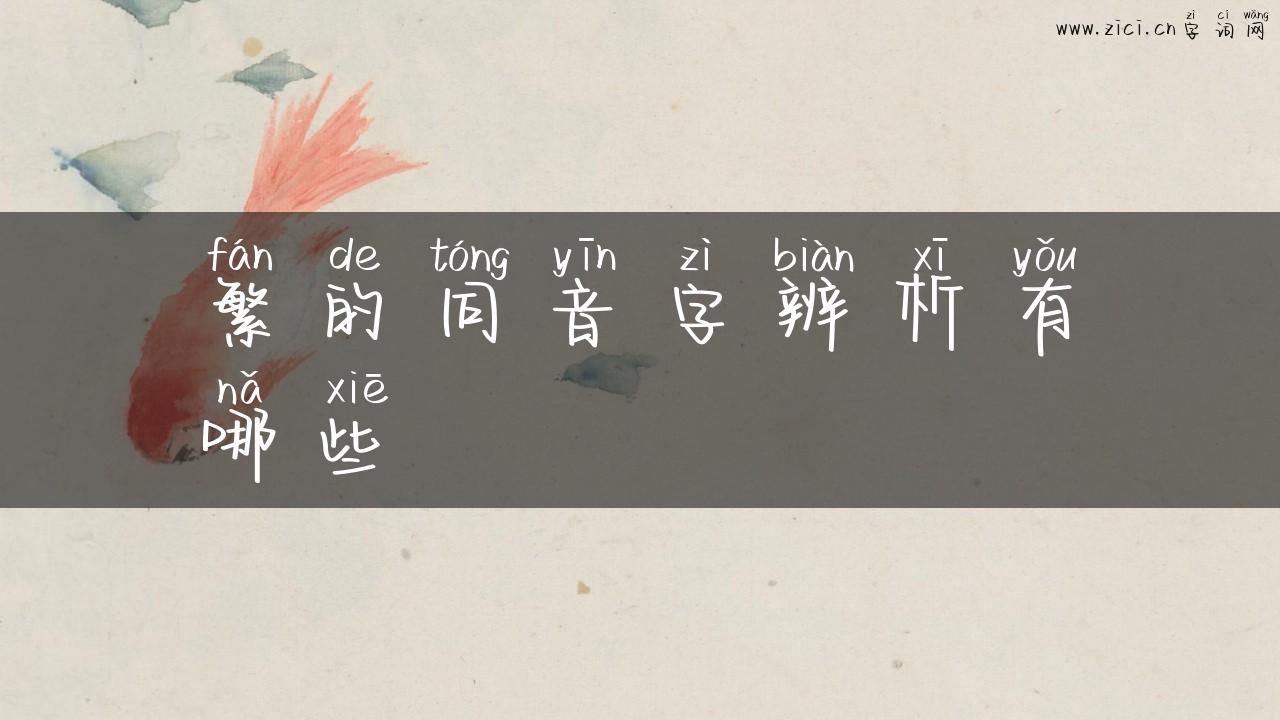 zì cí wǎng
www.zici.cn 字词网
fán de tóng yīn zì biàn xī yǒu
繁的同音字辨析有
nǎ xiē
哪些